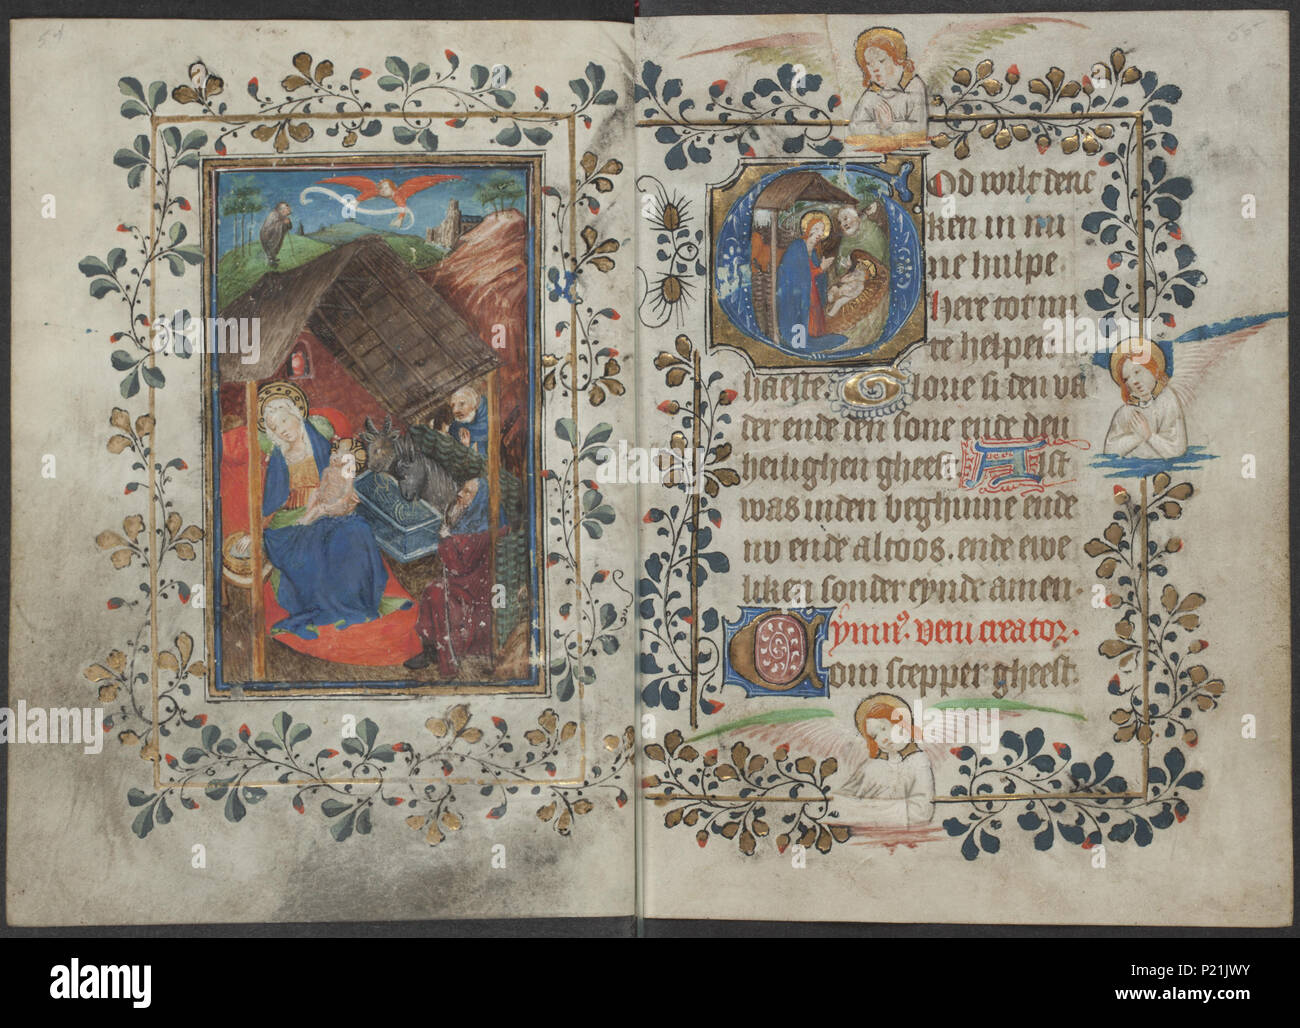 54
55
God wilt denc
ken in mi
ne hulpe.
here tot mi
te helpen
haeste. Glorie si den va
der ende den sone ende den
heilighen gheest Alst
was in den beghinne ende
nv ende altoos. ende ewe
liken sonder eynde amen.
ymnꝰ. veni creator.
Com scepper gheest
alamy
alamy stock photo
Image ID: P21JWY
www.alamy.com